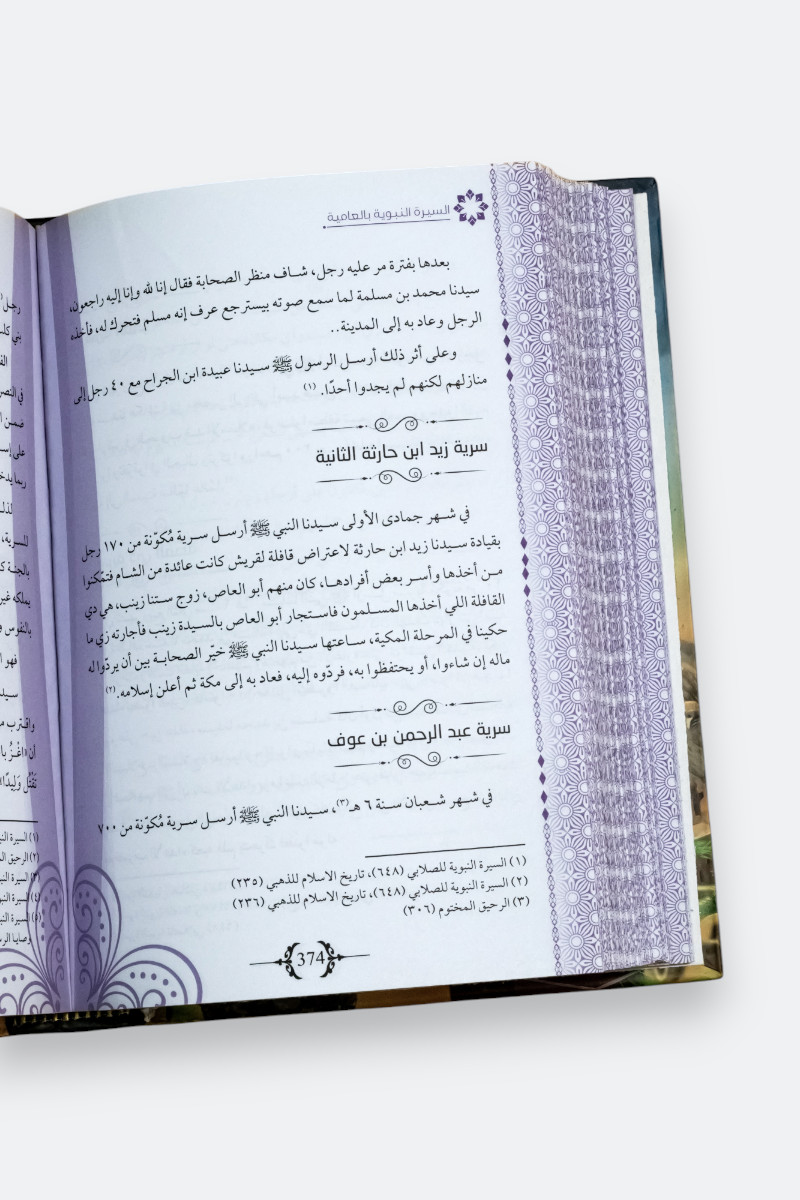 السيرة النبوية بالعامية
بعدها بفترة مر عليه رجل، شاف منظر الصحابة فقال إنا لله وإنا إليه راجعون،
سيدنا محمد بن مسلمة لما سمع صوته بيسترجع عرف إنه مسلم فتحرك له، فأخذه
الرجل وعاد به إلى المدينة..
وعلى أثر ذلك أرسل الرسول ﷺ سيدنا عبيدة ابن الجراح مع ٤٠ رجل إلى
منازلهم لكنهم لم يجدوا أحدًا. (١)
سرية زيد ابن حارثة الثانية
في شهر جمادى الأولى سيدنا النبي ﷺ أرسل سرية مُكوّنة من ١٧٠ رجل
بقيادة سيدنا زيد ابن حارثة لاعتراض قافلة لقريش كانت عائدة من الشام فتمكنوا
من أخذها وأسر بعض أفرادها، كان منهم أبو العاص، زوج ستنا زينب، هي دي
القافلة اللي أخذها المسلمون فاستجار أبو العاص بالسيدة زينب فأجارته زي ما
حكينا في المرحلة المكية، ساعتها سيدنا النبي ﷺ خيّر الصحابة بين أن يردّوا له
ماله إن شاءوا، أو يحتفظوا به، فردّوه إليه، فعاد به إلى مكة ثم أعلن إسلامه. (٢)
سرية عبد الرحمن بن عوف
في شهر شعبان سنة ٦ هـ(٣)، سيدنا النبي ﷺ أرسل سرية مُكوّنة من ٧٠٠
(١) السيرة النبوية للصلابي (٦٤٨)، تاريخ الاسلام للذهبي (٢٣٥)
(٢) السيرة النبوية للصلابي (٦٤٨)، تاريخ الاسلام للذهبي (٢٣٦)
(٣) الرحيق المختوم (٣٠٦)
374